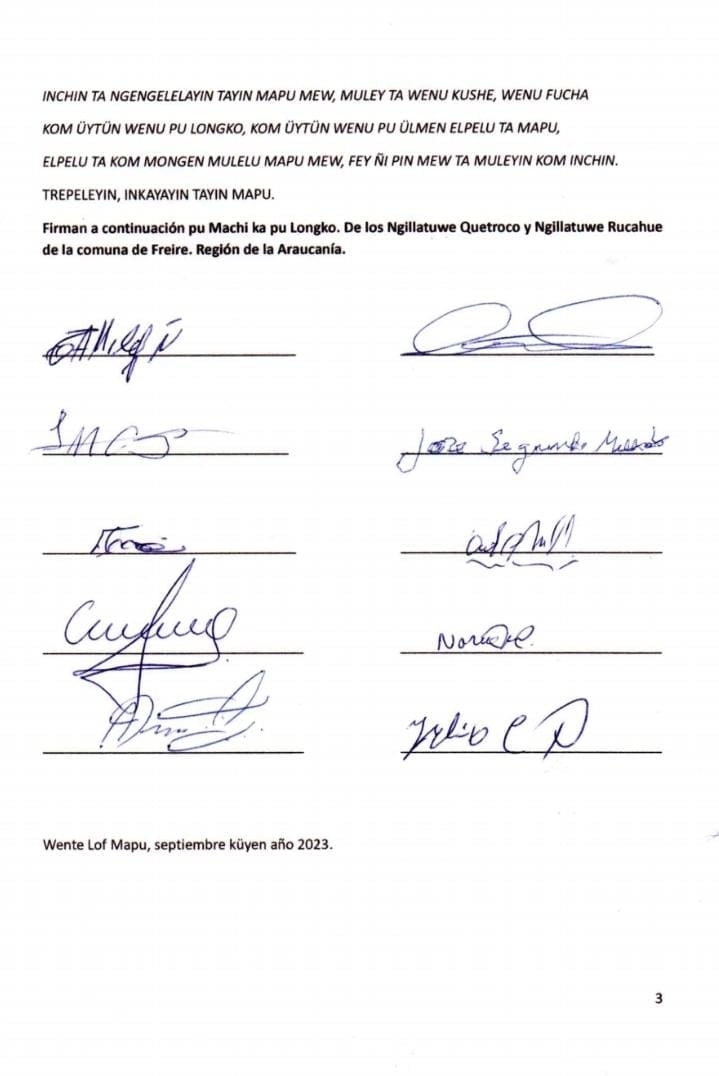 INCHIN TA NGENGELELAYIN TAYIN MAPU MEW, MULEY TA WENU KUSHE, WENU FUCHA
KOM ÜYTÜN WENU PU LONGKO, KOM ÜYTÜN WENU PU ÜLMEN ELPELU TA MAPU,
ELPELU TA KOM MONGEN MULELU MAPU MEW, FEY ÑI PIN MEW TA MULEYIN KOM INCHIN.
TREPELEYIN, INKAYAYIN TAYIN MAPU.
Firman a continuación pu Machi ka pu Longko. De los Ngillatuwe Quetroco y Ngillatuwe Rucahue
de la comuna de Freire. Región de la Araucanía.
Segundo
Wente Lof Mapu, septiembre küyen año 2023.
3